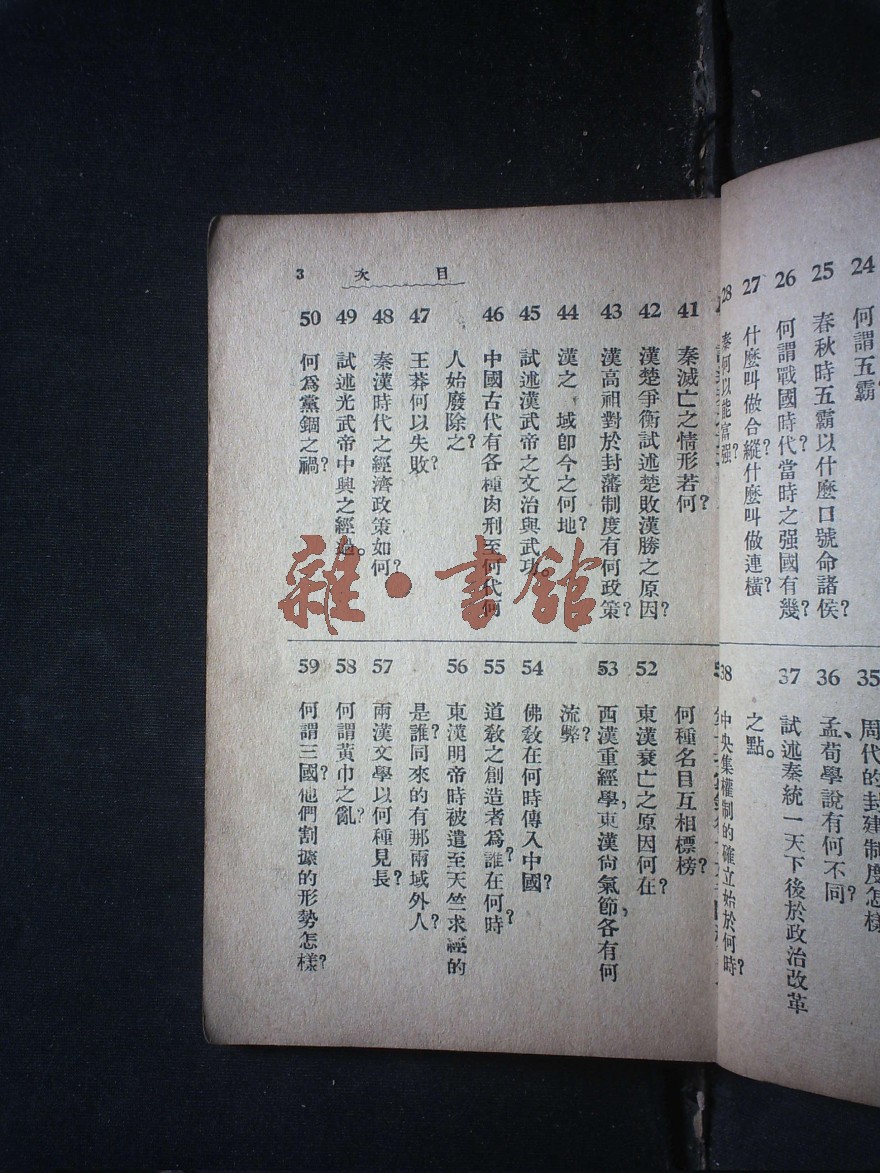 24 何謂五霸
25 春秋時五霸以什麼口號命諸侯?
26 何謂戰國時代?當時之强國有幾?
27 什麼叫做合縱?什麼叫做連橫?
28 秦何以能富强?
35 周代的封建制度怎樣
36 孟、荀學說有何不同?
37 試述秦統一天下後於政治改革
之點。
38 中央集權制的確立始於何時?
3 次 目
41 秦滅亡之情形若何?
42 漢楚爭衡試述楚敗漢勝之原因?
43 漢高祖對於封藩制度有何政策?
44 漢之 域卽今之何地?
45 試述漢武帝之文治與武功。
46 中國古代有各種肉刑至何代何
人始廢除之?
47 王莽何以失敗?
48 秦漢時代之經濟政策如何?
49 試述光武帝中興之經過。
50 何爲黨錮之禍?
何種名目互相標榜?
52 東漢衰亡之原因何在?
53 西漢重經學,東漢尙氣節,各有何
流弊?
54 佛敎在何時傳入中國?
55 道敎之創造者爲誰?在何時?
56 東漢明帝時被遣至天竺求經的
是誰?同來的有那兩域外人?
57 兩漢文學以何種見長?
58 何謂黃巾之亂?
59 何謂三國?他們割據的形勢怎樣?
雜·書館